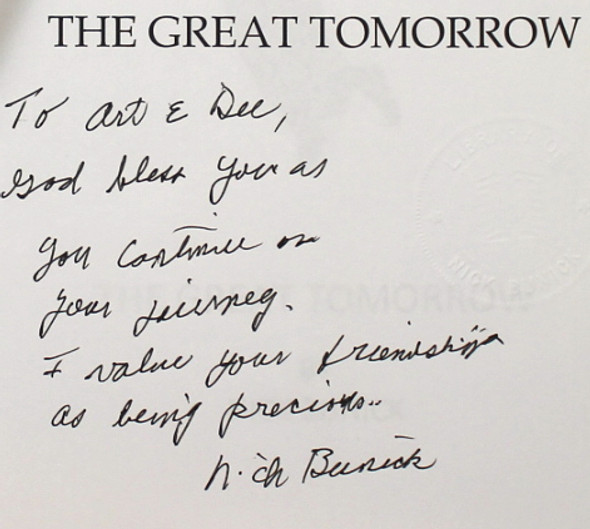 THE GREAT TOMORROW
To Art & Dee,
God bless you as
you continue on
your journey.
I value your friendship
as being precious..
Nick Bunick
THE GREAT TOMORROW
LIBRARY OF
NICK BUNICK